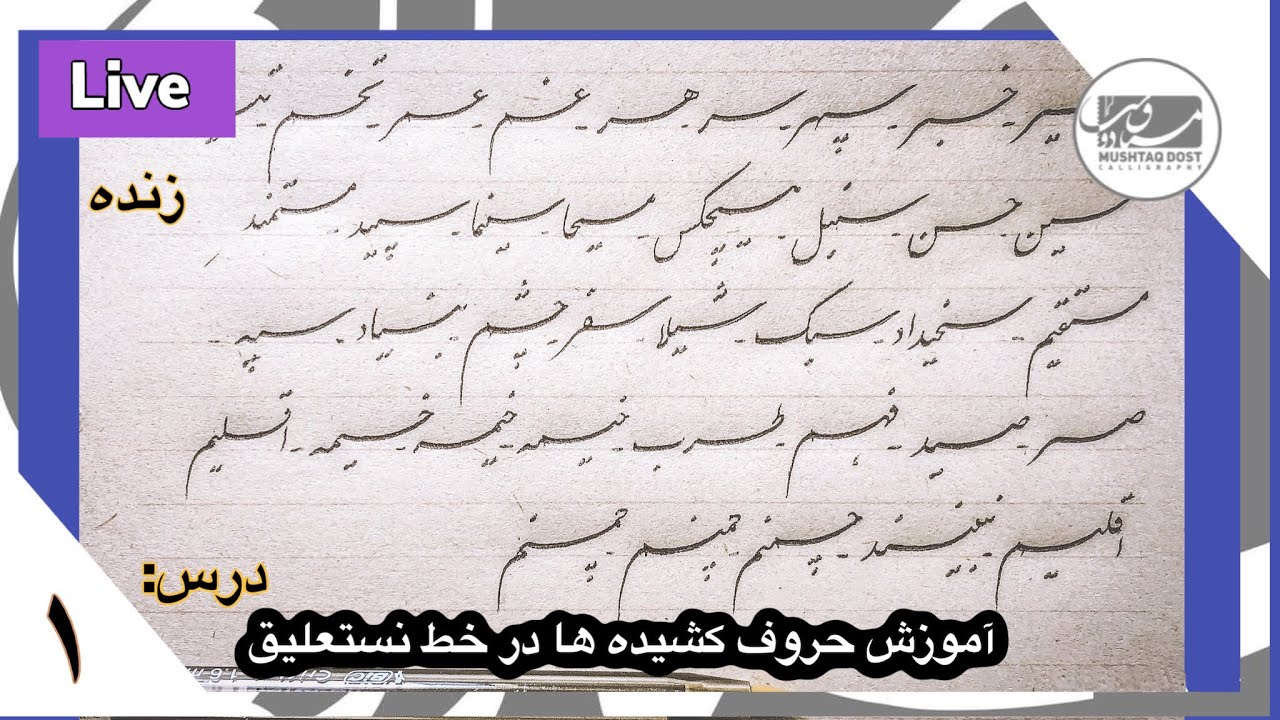 Live
MUSHTAQ DOST
CALLIGRAPHY
زنده
خبر - سپهر - سر - هر - غم - عمر - تخم
حسن - سنبل - هیچکس - مسیحا - سینما - سپید - مستمند
مستقیم - سنجیداد - سبک - شیلا - سفر - چشم - بنیاد - سیه -
صبر - صید - فهم - طرب - نیمه - خیمه - خیمه - اقلیم
اقلیم - نبینند - چینم - چینم - چینم
درس:
۱
آموزش حروف کشیده ها در خط نستعلیق